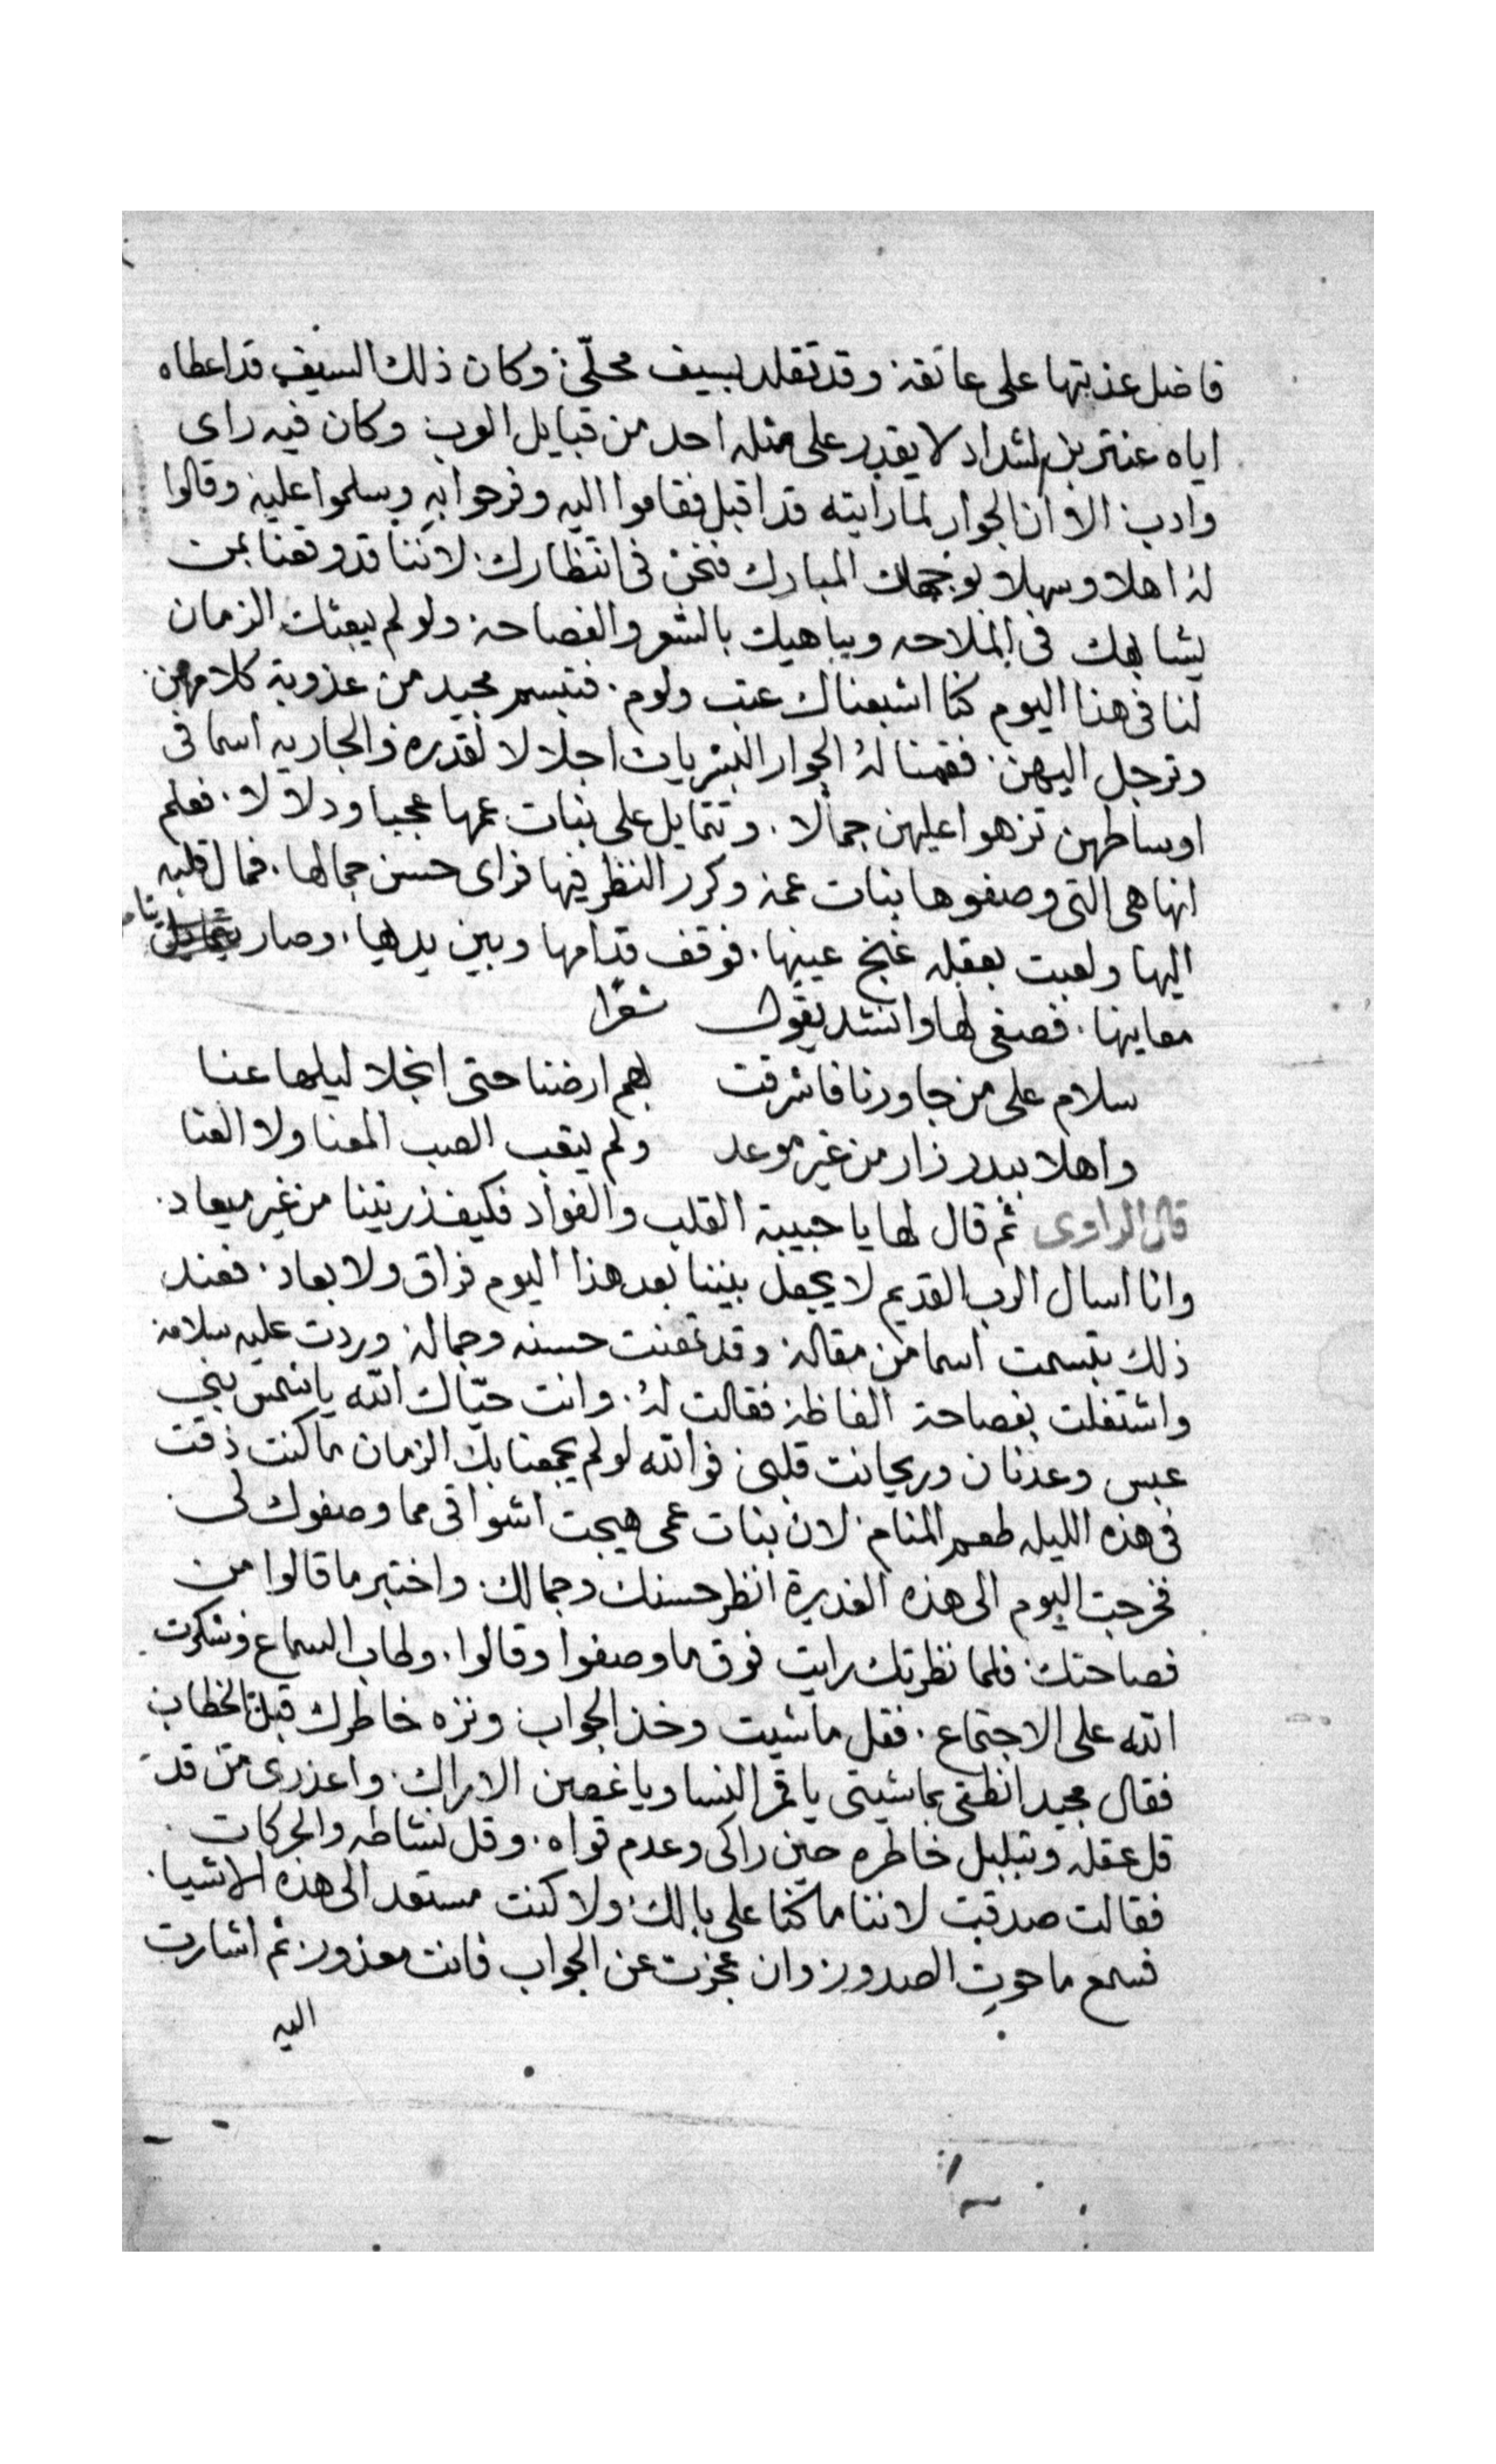 فاضل عذبتها على عاتقه وقد تقلد بسيف محلّى وكان ذلك السيف قد اعطاه
اياه عنتر بن شداد لا يقدر على مثله احد من قبايل العرب وكان فيه راي
وادب الا وان الجوار لما رايته قد اقبل فقاموا اليه وفرحوا به وسلموا عليه وقالوا
له اهلا وسهلا بوجهك المبارك فنحن في انتظارك لاننا قد وقعنا بمن
يشابهك في الملاحه ويباهيك بالشعر والفصاحه ولو لم يبعثك الزمان
لنا في هذا اليوم كنا اشبعناك عتب ولوم. فتبسم مجيد من عذوبة كلامهن
وترجل اليهن. فقمنا له الجوار البشريات اجلالا لقدره والجاريه اسما في
اوساطهن تزهوا عليهن جمالا. وتتمايل على بنات عمها عجبا ودلالا. فعلم
انها هي التي وصفوها بنات عمه وكرر النظر فيها فراى حسن جمالها. فمال قلبه
اليها ولعبت بعقله غنج عينها. فوقف قدامها وبين يديها. وصار يتامل
معاينها. فصغى لها وانشد يقول شعرا
سلام على من جاورنا فاشرقت بهم ارضنا حتى انجلا ليلها عنا
واهلا ببدر زار من غير موعد ولم يتعب الصب المعنا ولا العنا
قال الراوى ثم قال لها يا حبيبة القلب والفواد فكيف زرتينا من غير ميعاد.
وانا اسال الرب القديم لا يجعل بيننا بعد هذا اليوم فراق ولا بعاد. فعند
ذلك تبسمت اسما من مقاله وقد تمعنت حسنه وجماله وردت عليه سلامه
واشتغلت بفصاحة الفاظه فقالت له. وانت حيّاك الله يا شمس بني
عبس وعدنان وريحانت قلبي فوالله لو لم يجمعنا بك الزمان ما كنت ذقت
في هذه الليله طعم المنام لان بنات عمى هيجت اشواقى مما وصفوك لى
فخرجت اليوم الى هذه الغديرة انظر حسنك وجمالك واختبر ما قالوا من
فصاحتك فلما نظرتك رايت فوق ما وصفوا وقالوا. وطاب السماع وشكرت
الله على الاجتماع. فقل ما شيت وخذ الجواب ونزه خاطرك قبل الخطاب
فقال مجيد انطقى بما شيتى يا قمر النسا ويا غصن الاراك واعذرى من قد
قل عقله وتبلبل خاطره حين راكى وعدم قواه. وقل نشاطه والحركات
فقالت صدقت لاننا ما كنا على بالك ولا كنت مستعد الى هذه الاشيا.
فسمع ما حوت الصدور وان عجزت عن الجواب فانت معذور ثم اشارت
اليه